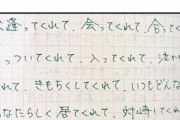 逢ってくれて、会ってくれて、合ってく
っついてくれて、入ってくれて、
れて、きもちくしてくれて、いつもどんな
なたらしく居てくれて、対峙してくれ